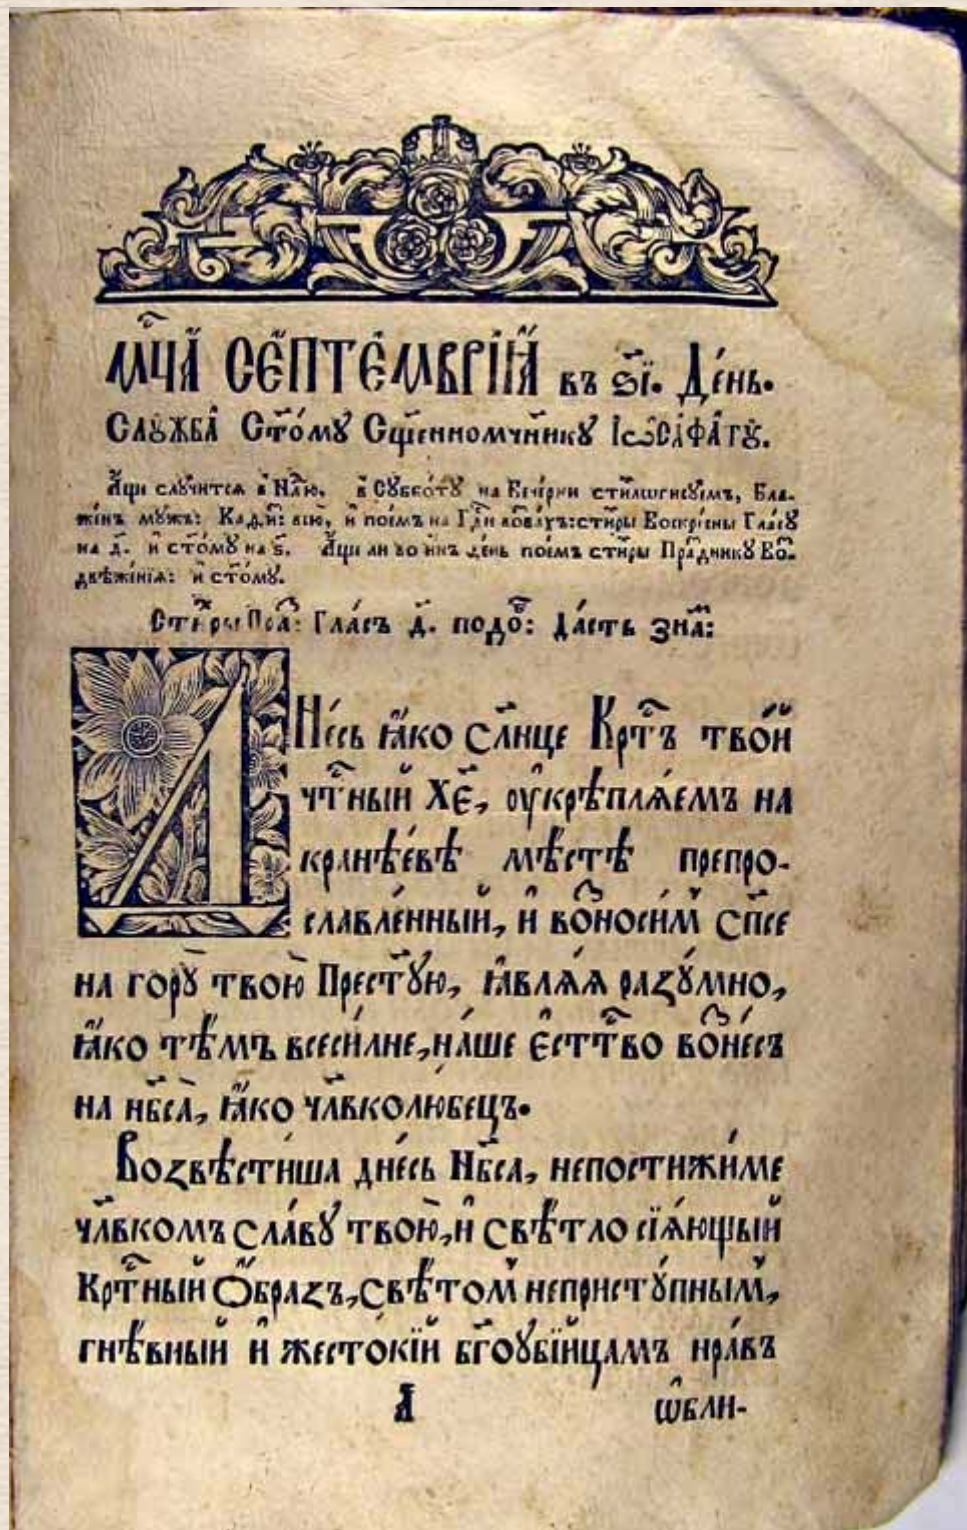 Мⷭ҇ца СЕПТЕМВРІА въ ѕ҃і. День.
Слꙋжба Ст҃омꙋ Сщ҃енномч҃никꙋ Іѡсафатꙋ.
Аще слꙋчится в Нлⷣю, в Сꙋбботꙋ на Вечерни стихологисꙋемъ, Бла-
женъ мꙋжъ: всю, и поемъ на Гдⷭ҇и стиры Воскрⷭ҇ны Гласꙋ
на д҃. и ст҃омꙋ на ѕ҃. Аще ли во инъ день поемъ стиры Праⷥдникꙋ Воⷥ-
движенїѧ: и ст҃омꙋ.
Стиⷯры Гласъ д҃. подоⷠ: Дасть знаⷨ:
Днесь ꙗко слн҃це Крⷭ҇тъ твой
чⷭ҇тный Хе҃, оукрѣплѧемъ на
краниевѣ мѣстѣ препро-
славленный, и воⷥносим̾ Сп҃се
на горꙋ твою Прест҃ꙋю, ꙗвлѧѧ разꙋмно,
ꙗко тѣмъ всесилне, наше естⷭ҇тво воⷥнесъ
на нб҃са, ꙗко чл҃вколюбецъ.
Возвѣстиша днесь Нб҃са, непостижиме
чл҃вкомъ славꙋ твою, и свѣтло сїѧющый
Крⷭ҇тный Ѻбразъ, свѣтом̾ непристꙋпным̾,
гнѣвный и жестокїй бг҃оубїйцамъ нравъ
А ѡбли-